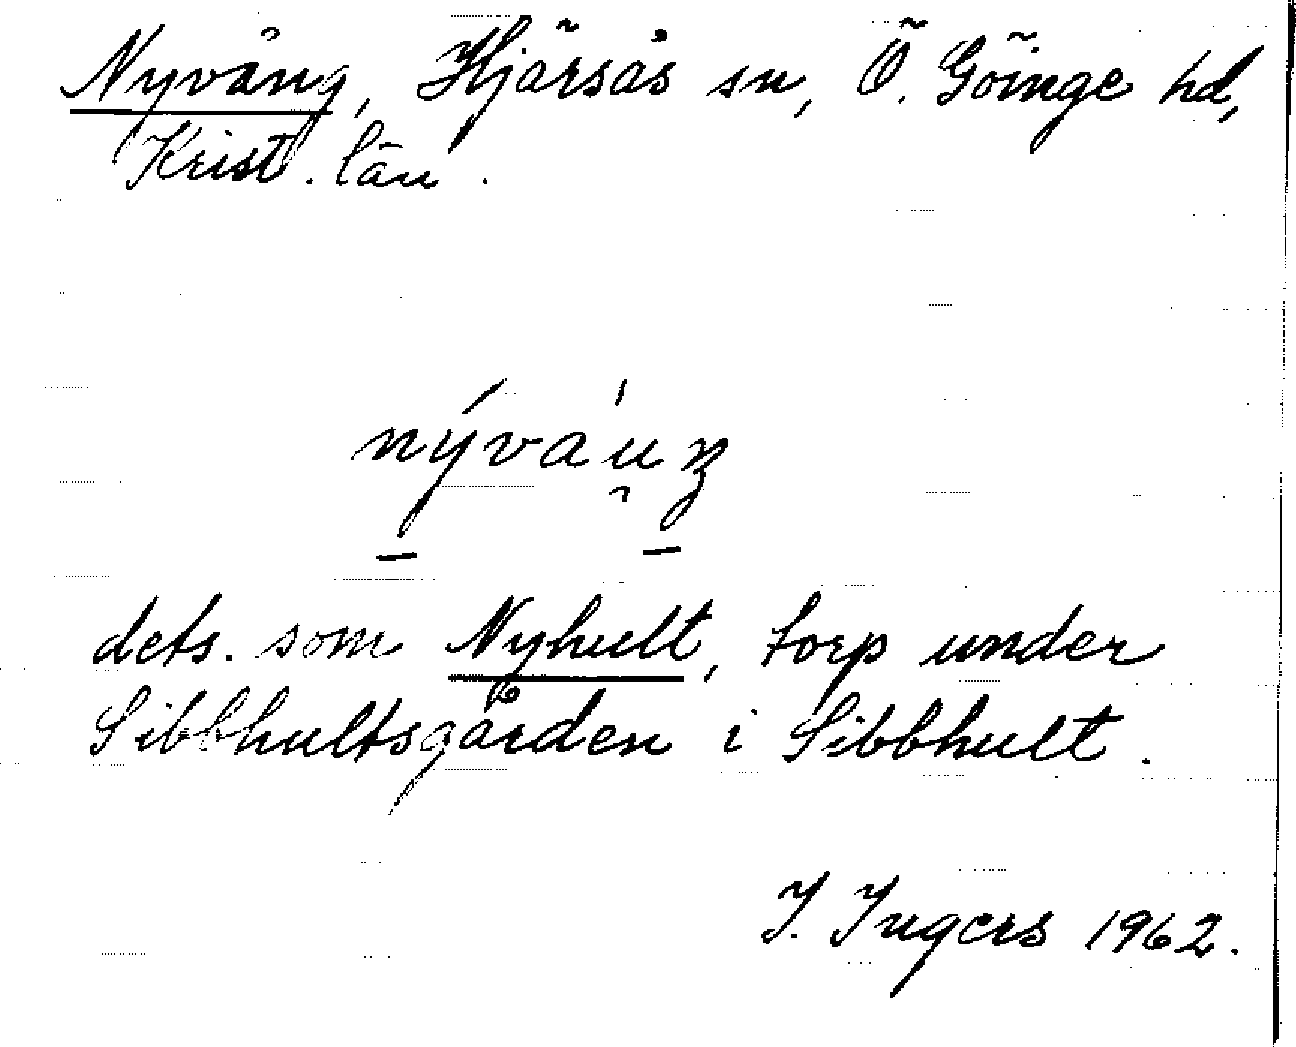 Nyvång, Hjärsås sn, Ö. Göinge hd,
Krist. län.
dets. som Nyhult, torp under
Sibbhultsgården i Sibbhult.
I. Ingers 1962.